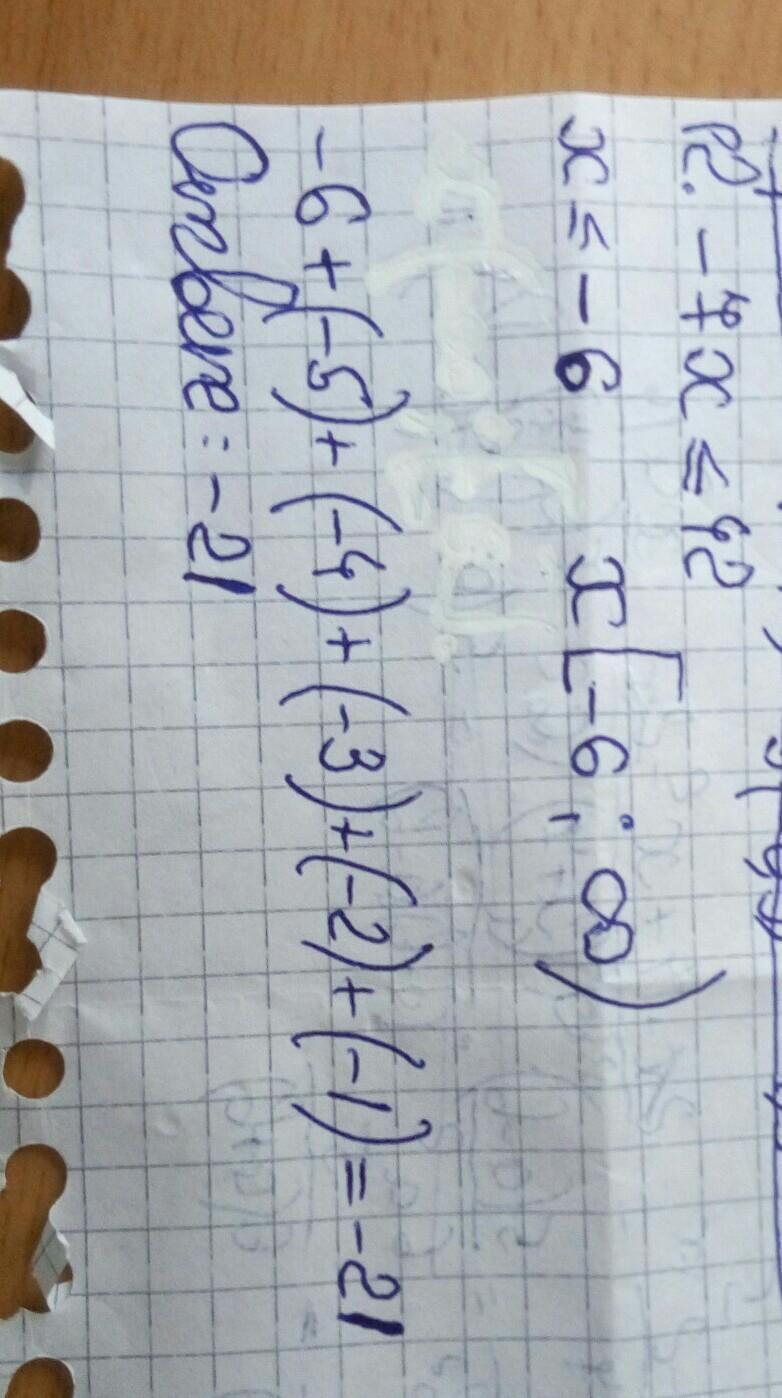 12. -7x ≤ 42
x ≤ -6 x[-6; ∞)
-6+(-5)+(-4)+(-3)+(-2)+(-1)=-21
Ответ: -21